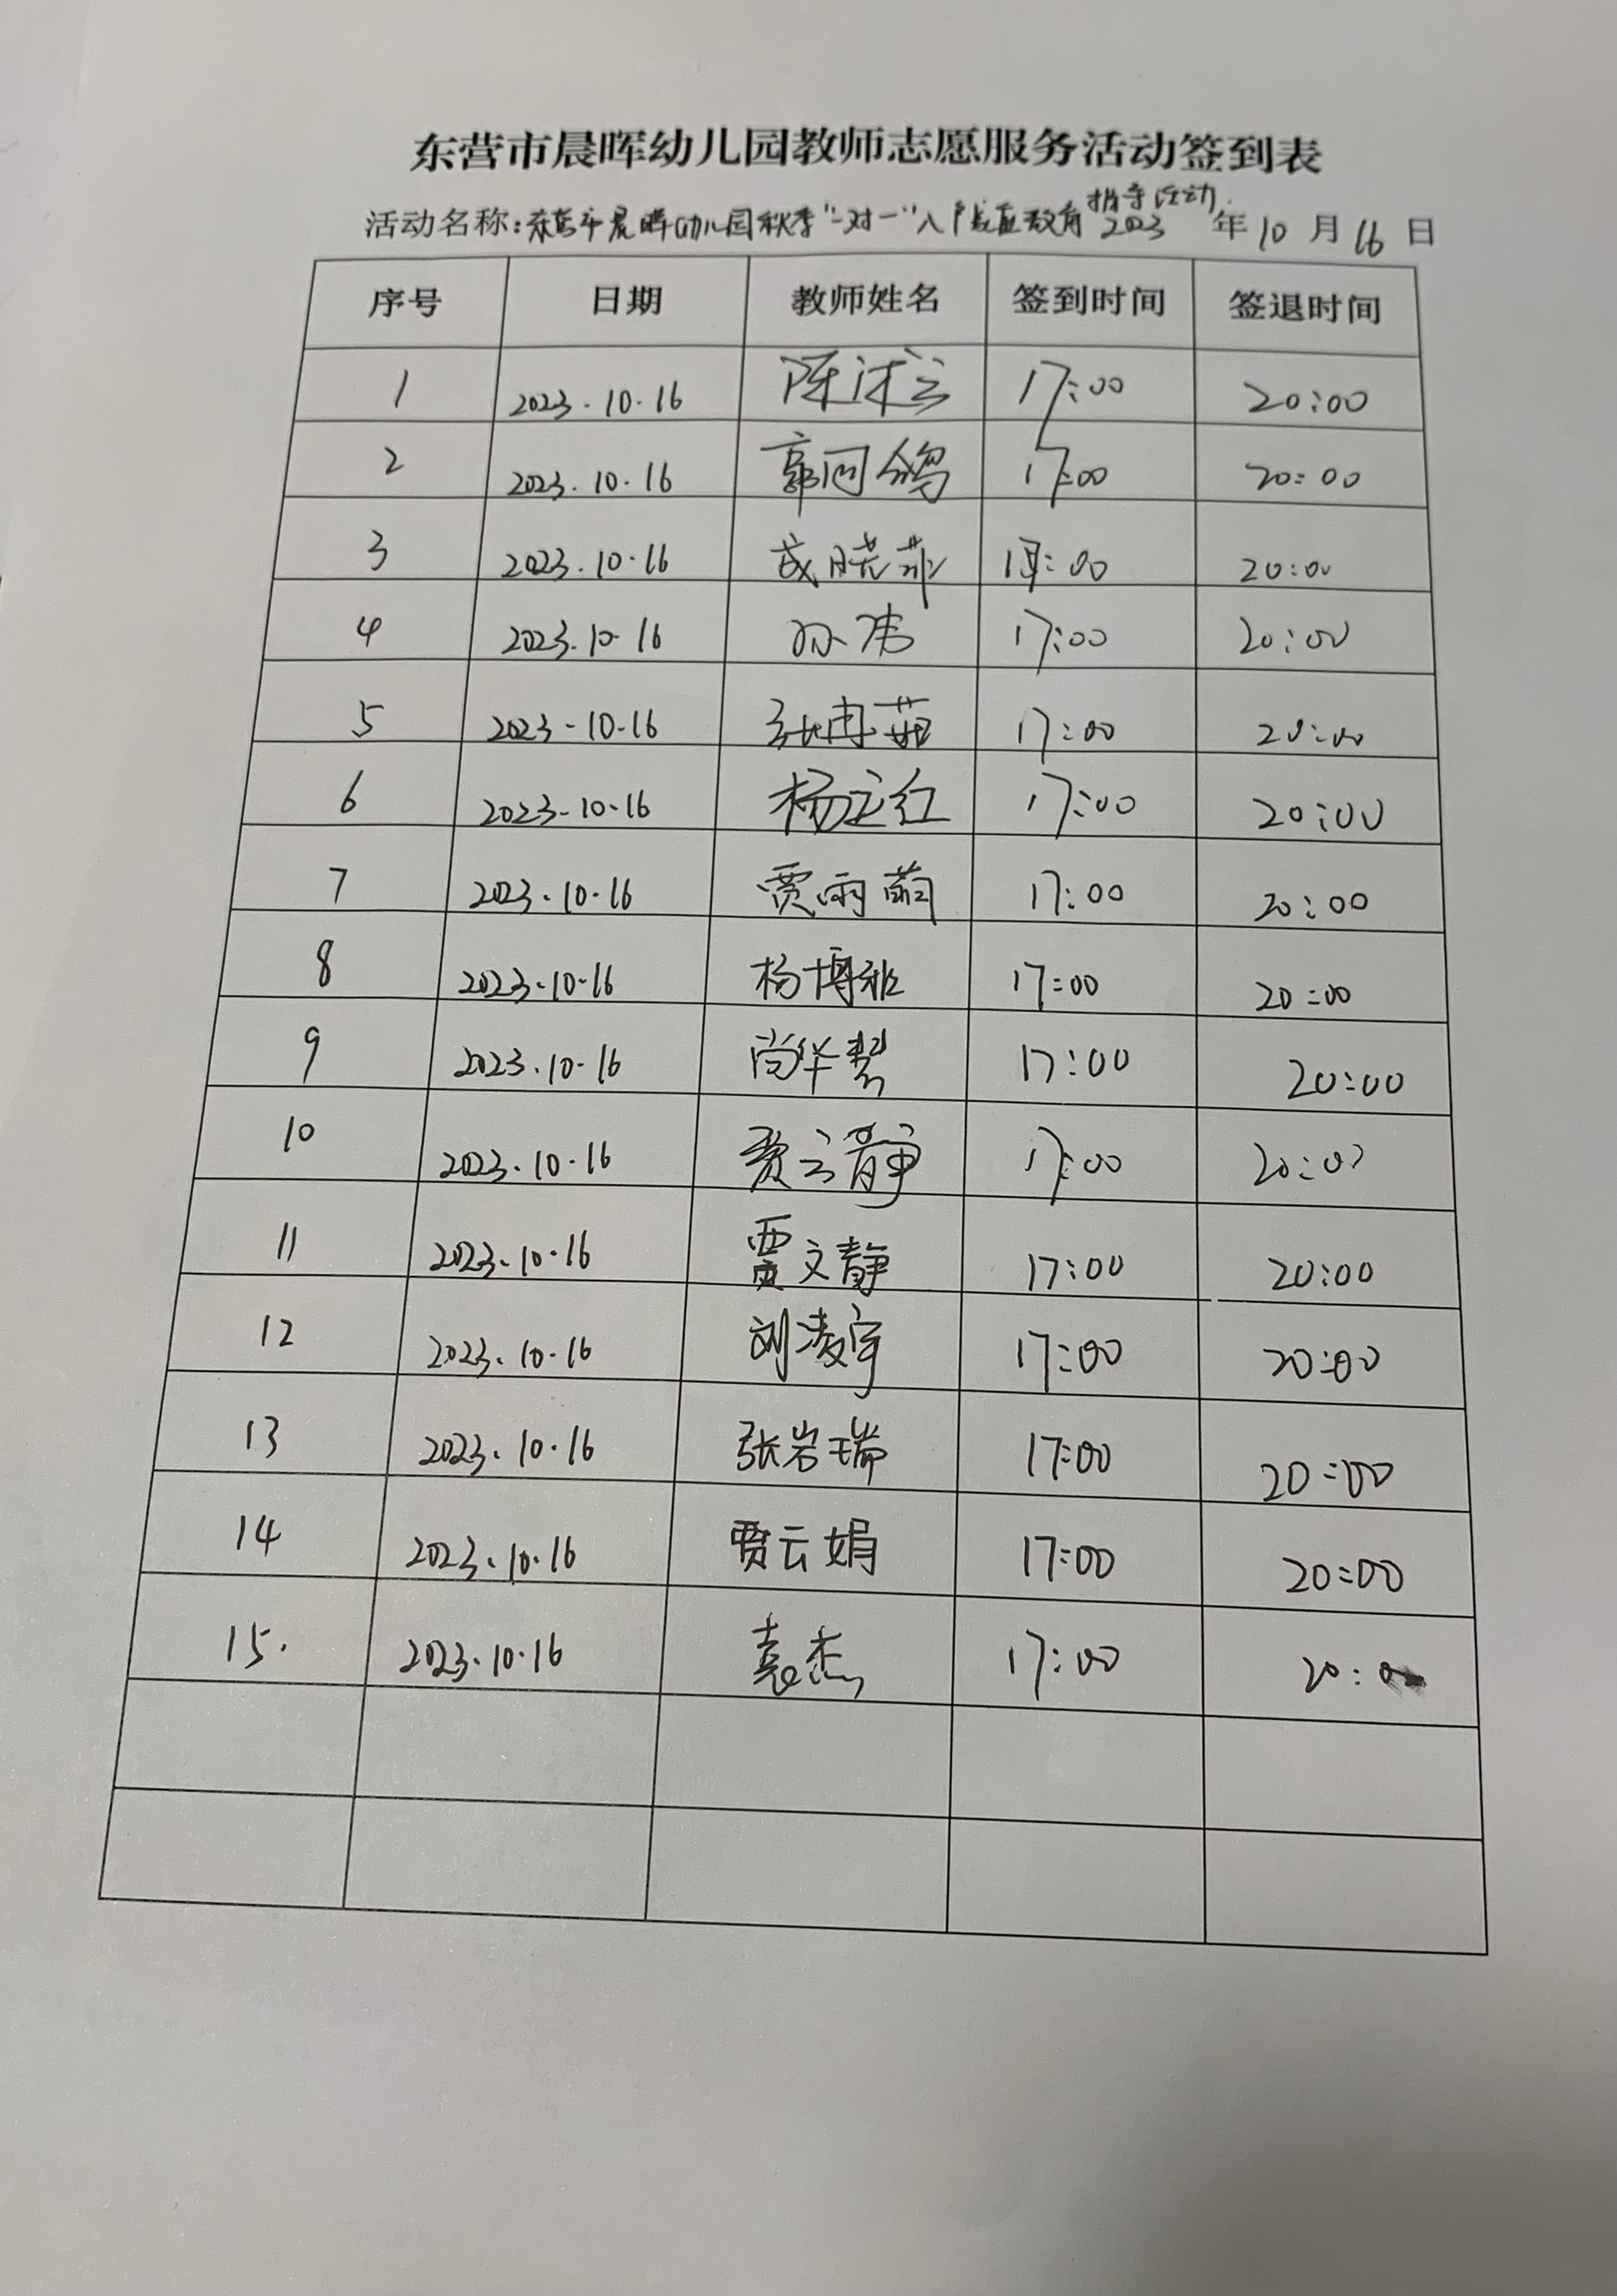 东营市晨晖幼儿园教师志愿服务活动签到表
指导活动
活动名称:东营市晨晖幼儿园秋季"一对一"入户家庭教育 2023 年 10 月 16 日
序号 日期 教师姓名 签到时间 签退时间
1 2023.10.16 17:00 20:00
2 2023.10.16 17:00 20:00
3 2023.10.16 成晓菲 17:00 20:00
4 2023.10.16 孙伟 17:00 20:00
5 2023-10-16 17:00 20:00
6 2023-10-16 17:00 20:00
7 2023.10.16 贾雨萌 17:00 20:00
8 2023.10.16 杨博雅 17:00 20:00
9 2023.10.16 尚华 17:00 20:00
10 2023.10.16 贾云静 17:00 20:00
11 2023.10.16 贾文静 17:00 20:00
12 2023.10.16 刘凌宇 17:00 20:00
13 2023.10.16 张岩瑞 17:00 20:00
14 2023.10.16 贾云娟 17:00 20:00
15. 2023.10.16 袁杰 17:00 20:00